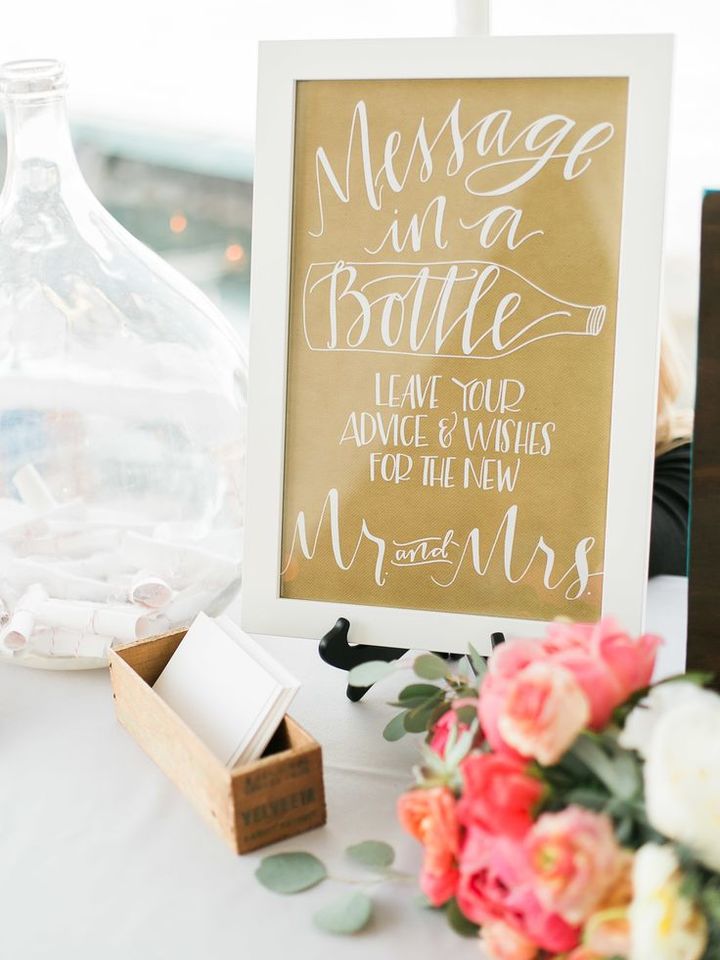 Message
in a
Bottle
LEAVE YOUR
ADVICE & WISHES
FOR THE NEW
Mr. and Mrs.
VELVEETA